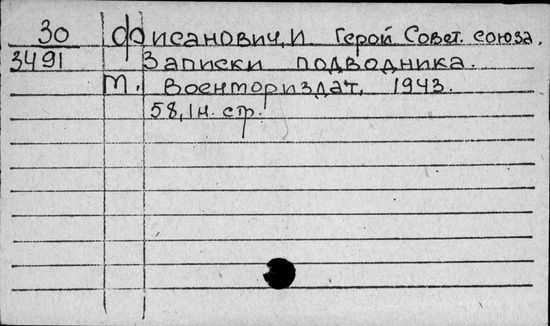 30 Фисанович, И. Герой Совет. союза.
3491 Записки подводника.
М. Военториздат, 1943.
58, 1 н. стр.